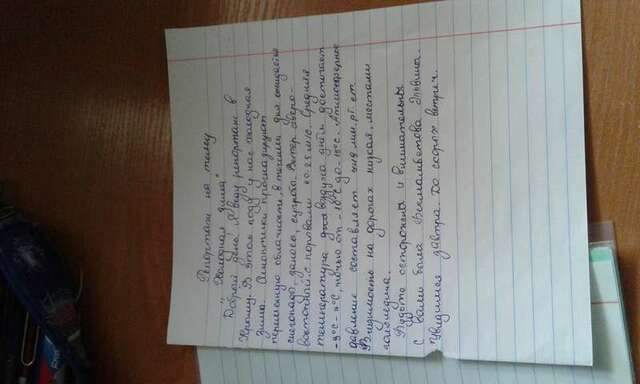 Репортаж на тему
„Холодная зима"
Добрый день! Я веду репортаж в
Крыму. В этом году у нас холодная
зима. Синоптики прогназируют
переменную облачность, в течении дня ожидается
снегопады, заносы, сугробы. Ветер северо-
восточный с порывами 20-25 м/с. Средняя
температура воздуха днём достигает
-3°С- °С, ночью от -10°С до -15°С. Атмосферное
давление составляет мм. рт ст.
Видимость на дорогах низкая, местами
гололедица.
Будьте осторожны и внимательны
С вами была Бекмамбетова Эльвина.
Увидимся завтра. До скорых встреч.